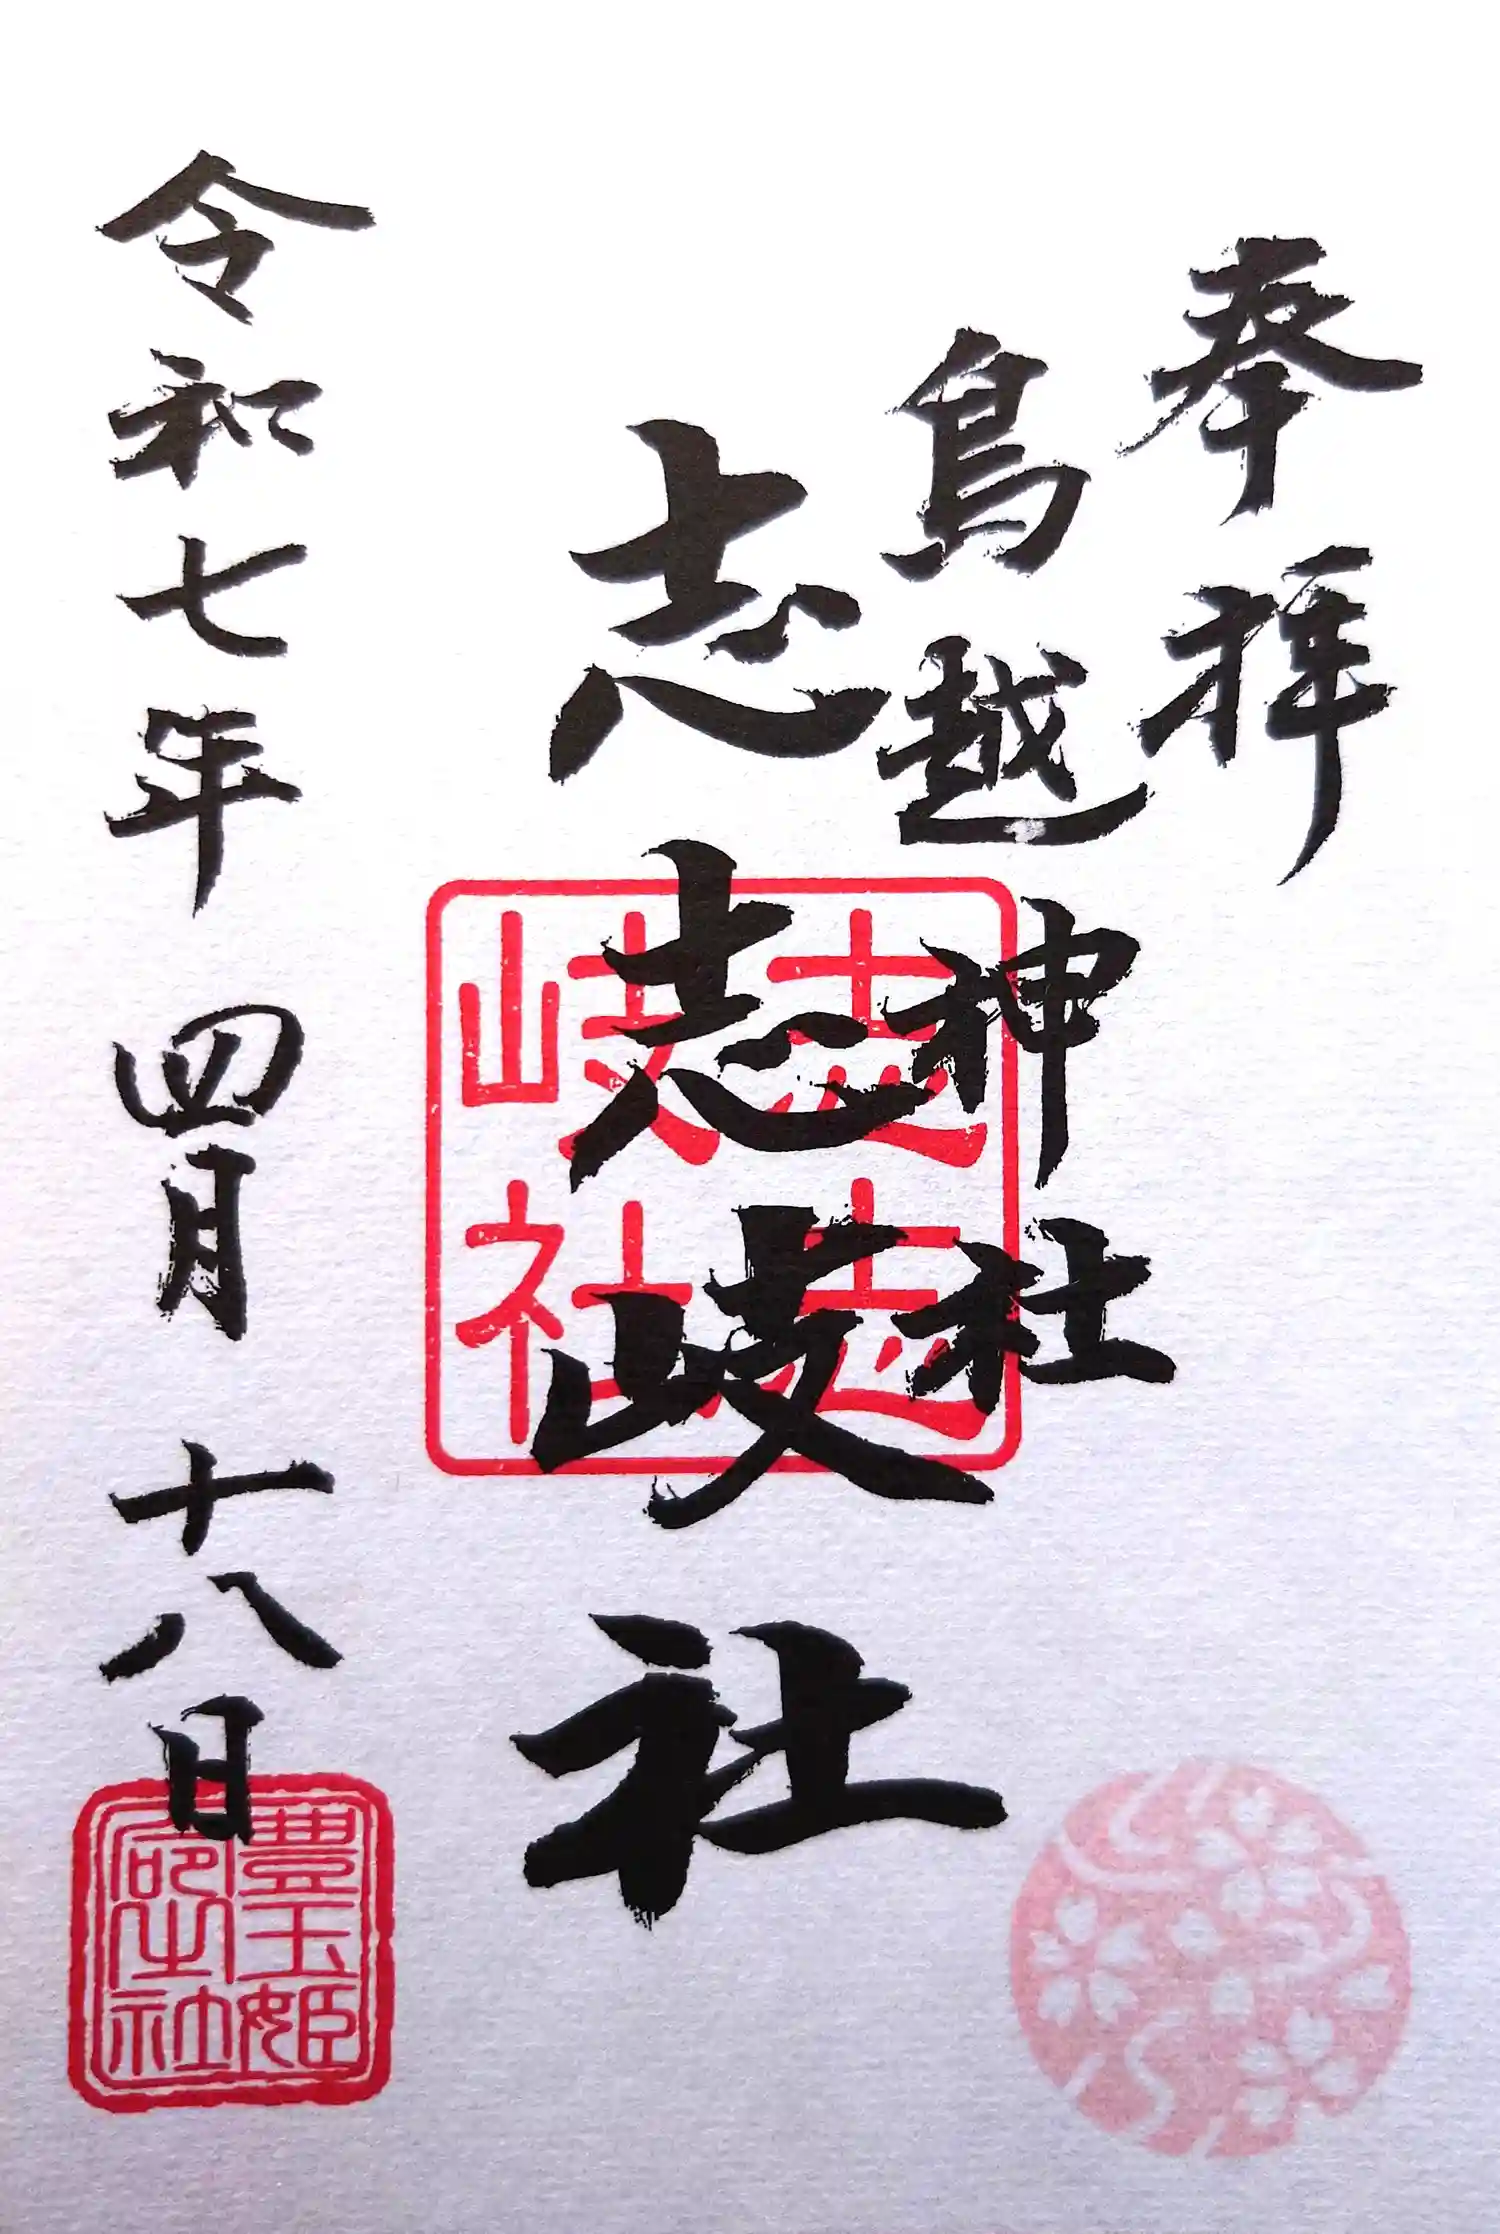 奉拝
鳥越神社
志志岐社
志志岐社
令和七年四月十八日
豊玉姫
命之社